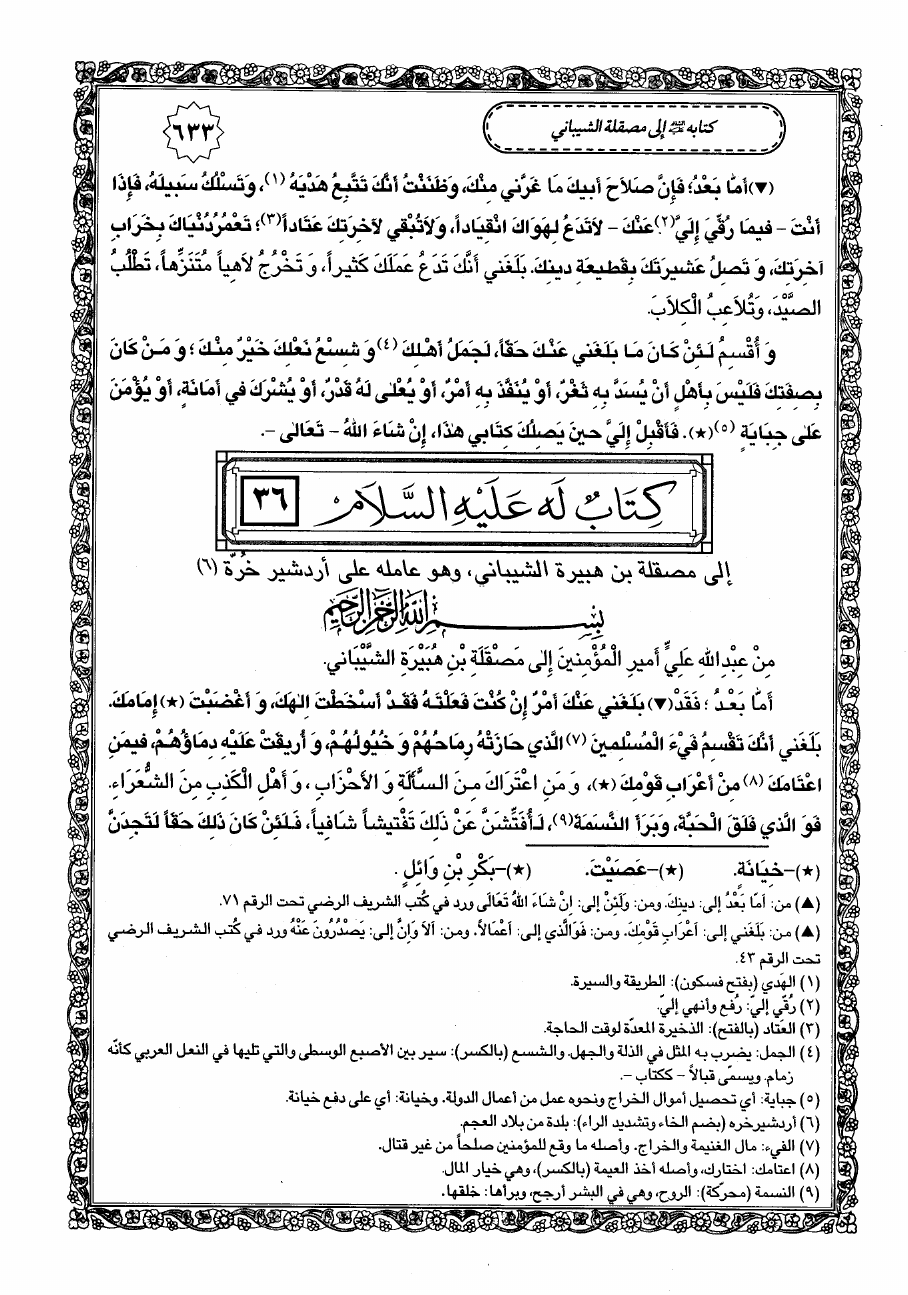 كتابه عليه السلام إلى مصقلة الشيباني
٦٣٣
(▼) أَمَّا بَعْدُ؛ فَإِنَّ صَلاَحَ أَبيكَ مَا غَرَّني مِنْكَ، وَظَنَنْتُ أَنَّكَ تَتَّبِعُ هَدْيَهُ (١)، وَتَسْلُكُ سَبيلَهُ، فَإِذَا
أَنْتَ - فيمَا رُقِّيَ إِلَيَّ (٢) عَنْكَ - لاَتَدَعُ لِهَوَاكَ انْقِيَاداً، وَلاَتُبْقي لآخِرَتِكَ عَتَاداً (٣)؛ تَعْمُرُدُنْيَاكَ بِخَرَابِ
آخِرَتِكَ، وَ تَصِلُ عَشيرَتَكَ بِقَطيعَةِ دينِكَ. بَلَغَني أَنَّكَ تَدَعُ عَمَلَكَ كَثيراً، وَ تَخْرُجُ لاَهِياً مُتَنَزِّهاً، تَطْلُبُ
الصَّيْدَ، وَتُلاَعِبُ الْكِلاَبَ.
وَ أُقْسِمُ لَئِنْ كَانَ مَا بَلَغَني عَنْكَ حَقّاً، لَجَمَلُ أَهْلِكَ (٤) وَ شِسْعُ نَعْلِكَ خَيْرٌ مِنْكَ؛ وَ مَنْ كَانَ
بِصِفَتِكَ فَلَيْسَ بِأَهْلٍ أَنْ يُسَدَّ بِهِ ثَغْرٌ، أَوْ يُنْفَذَ بِهِ أَمْرٌ، أَوْ يُعْلى لَهُ قَدْرٌ، أَوْ يُشْرَكَ في أَمَانَةٍ، أَوْ يُؤْمَنَ
عَلى جِبَايَةٍ (٥) (★). فَأَقْبِلْ إِلَيَّ حينَ يَصِلُكَ كِتَابي هذَا، إِنْ شَاءَ اللهُ - تَعَالى -.
كِتَابٌ لَه عَلَيْهِ السَّلاَم
٣٦
إلى مصقلة بن هبيرة الشيباني، وهو عامله على أردشير خُرّة (٦)
بِسْمِ اللهِ الرَّحْمنِ الرَّحيمِ
مِنْ عَبْدِ اللهِ عَلِيٍّ أَميرِ الْمُؤْمِنينَ إِلى مَصْقَلَةَ بْنِ هُبَيْرَةَ الشَّيْبَاني.
أَمَّا بَعْدُ؛ فَقَدْ (▼) بَلَغَني عَنْكَ أَمْرٌ إِنْ كُنْتَ فَعَلْتَهُ فَقَدْ أَسْخَطْتَ إِلهَكَ، وَ أَغْضَبْتَ (★) إِمَامَكَ.
بَلَغَني أَنَّكَ تَقْسِمُ فَيْءَ الْمُسْلِمينَ (٧) الَّذي حَازَتْهُ رِمَاحُهُمْ وَ خُيُولُهُمْ، وَ أُريقَتْ عَلَيْهِ دِمَاؤُهُمْ، فيمَنِ
اعْتَامَكَ (٨) مِنْ أَعْرَابِ قَوْمِكَ (★)، وَ مَنِ اعْتَرَاكَ مِنَ السَّأَلَةِ وَ الأَحْزَابِ، وَ أَهْلِ الْكَذِبِ مِنَ الشُّعَرَاءِ.
فَوَ الَّذي فَلَقَ الْحَبَّةَ، وَبَرَأَ النَّسَمَةَ (٩)، لَأُفَتِّشَنَّ عَنْ ذلِكَ تَفْتيشاً شَافِياً، فَلَئِنْ كَانَ ذلِكَ حَقّاً لَتَجِدَنَّ
(★)-خيانَةٍ. (★)-عَصَيْتَ. (★)-بَكْرِ بْنِ وَائِلٍ.
(▲) من: أَمَّا بَعْدُ إلى: دينِكَ. ومن: وَلَئِنْ إلى: إِنْ شَاءَ اللهُ تَعَالى ورد في كُتب الشريف الرضي تحت الرقم ٧١.
(▲) من: بَلَغَني إلى: أَعْرَابِ قَوْمِكَ. ومن: فَوَالَّذي إلى: أَعْمَالاً. ومن: أَلاَ وَإِنَّ إلى: يَصْدُرُونَ عَنْهُ ورد في كُتب الشريف الرضي
تحت الرقم ٤٣.
(١) الهَدي (بفتح فسكون): الطريقة والسيرة.
(٢) رُقّي إليّ: رُفع وأنهي إليّ.
(٣) العتّاد (بالفتح): الذخيرة المعدّة لوقت الحاجة.
(٤) الجمل: يضرب به المثل في الذلة والجهل. والشسع (بالكسر): سير بين الأصبع الوسطى والتي تليها في النعل العربي كأنّه
زمام. ويسمّى قبالاً - ككتاب -.
(٥) جباية: أي تحصيل أموال الخراج ونحوه عمل من أعمال الدولة. وخيانة: أي على دفع خيانة.
(٦) أردشيرخره (بضم الخاء وتشديد الراء): بلدة من بلاد العجم.
(٧) الفيء: مال الغنيمة والخراج. وأصله ما وقع للمؤمنين صلحاً من غير قتال.
(٨) اعتامك: اختارك، وأصله أخذ العيمة (بالكسر)، وهي خيار المال.
(٩) النسمة (محرّكة): الروح، وهي في البشر أرجح، وبرأها: خلقها.